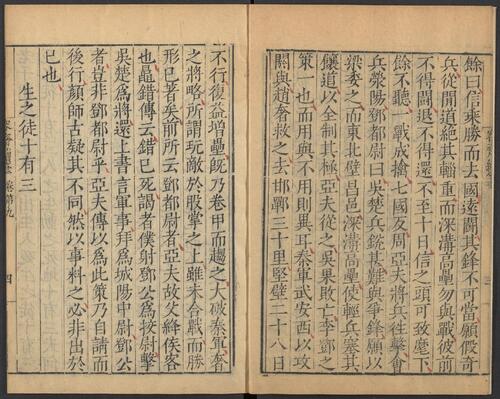 餘曰信乘勝而去國遠鬬其鋒不可當願假
兵從間道絕其輜重而深溝高壘勿與戰彼前
不得鬬退不得還不至十日信之頭可致麾下
餘不聽一戰成擒七國反周亞夫將兵往擊會
兵滎陽鄧都尉曰吳楚兵銳甚難與爭鋒願以
梁委之而東北壁昌邑深溝高壘使輕兵塞其
饟道以全制其極亞夫從之吳果敗亡李鄧之
策一也而用與不用則異耳秦軍武安西以攻
閼與趙奢救之去邯鄲三十里堅壁二十八日
不行復益增壘既乃卷甲而趨之大破秦軍奢
之將略所謂玩敵於股掌之上雖未合戰而勝
形已著矣前所云鄧都尉者亞夫故父絳侯客
也鼂錯傳云錯已死謁者僕射鄧公爲校尉擊
吳楚爲將還上書言軍事拜爲城陽中尉鄧公
者豈非鄧都尉乎亞夫傳以爲此策乃自請而
後行顏師古疑其不同然以事料之必非出於
已也
生之徒十有三
四